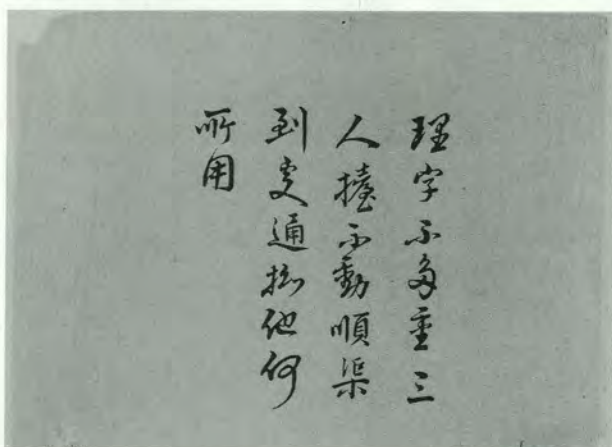 理字不多重三
人擡不動順渠
到處通拗他何
所用